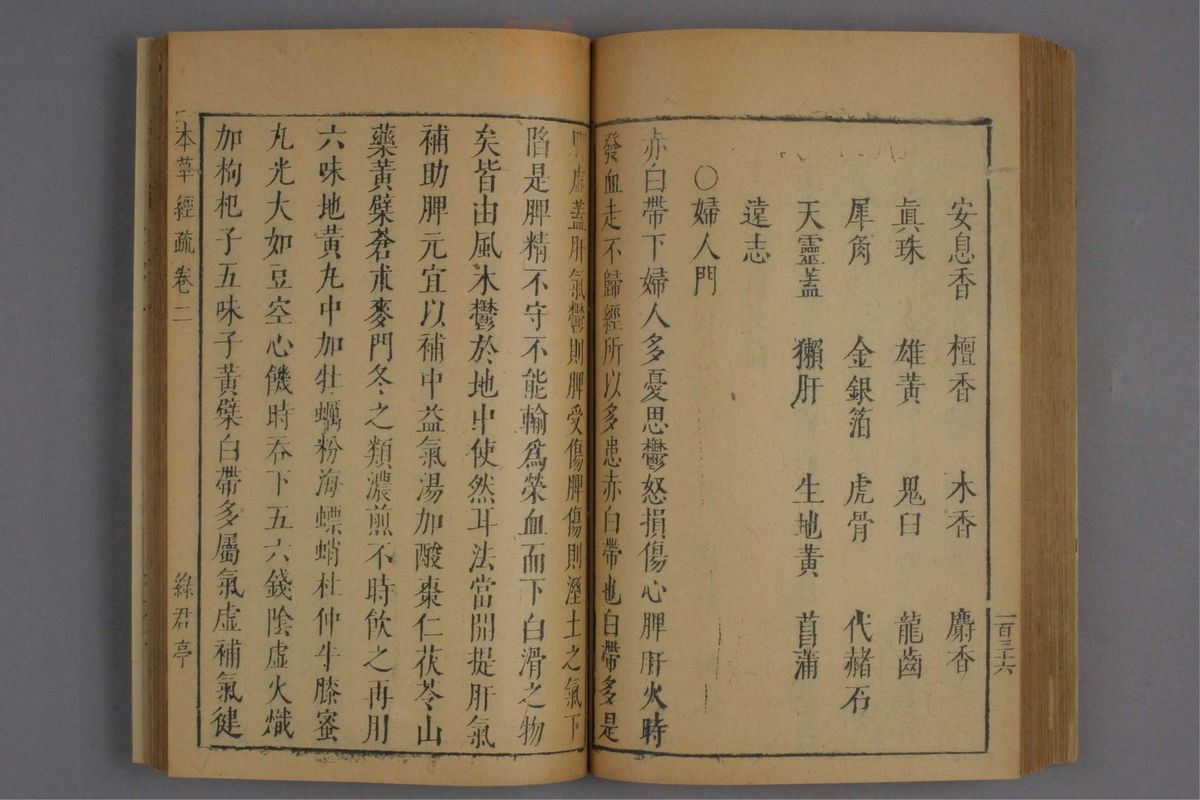 安息香 檀香 木香 麝香
眞珠 雄黃 鬼臼 龍齒
犀角 金銀箔 虎骨 代赭石
天靈蓋 獺肝 生地黃 菖蒲
遠志
○婦人門
赤白帶下婦人多憂思鬱怒損傷心脾肝火時
發血走不歸經所以多患赤白帶也白帶多是
脾虛蓋肝氣鬱則脾受傷脾傷則溼土之氣下
陷是脾精不守不能輸爲榮血而下白滑之物
矣皆由風木鬱於地中使然耳法當開提肝氣
補助脾元宜以補中益氣湯加酸棗仁茯苓山
藥黃檗蒼朮麥門冬之類濃煎不時飲之再用
六味地黃丸中加牡蠣粉海螵蛸杜仲牛膝蜜
丸光大如豆空心饑時吞下五六錢陰虛火熾
加枸杞子五味子黃檗白帶多屬氣虛補氣健
本草經疏 卷二 綠君亭
一百三十六